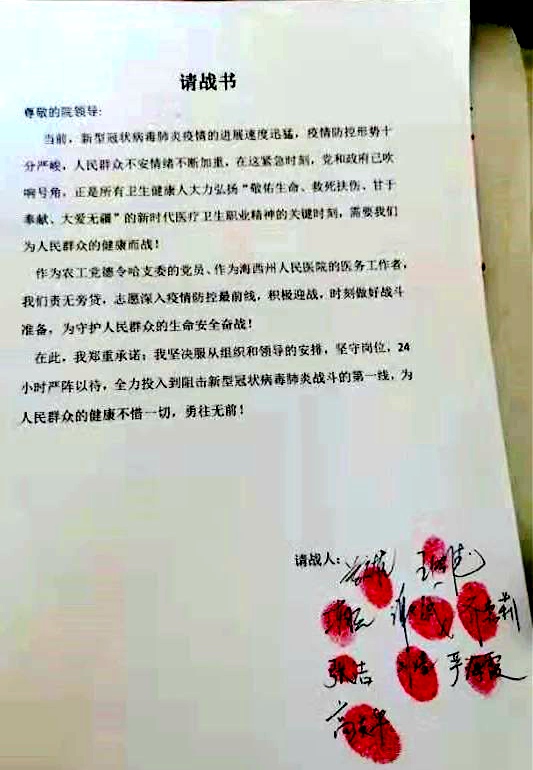 请战书
尊敬的院领导:
当前，新型冠状病毒肺炎疫情的进展速度迅猛，疫情防控形势十
分严峻，人民群众不安情绪不断加重，在这紧急时刻，党和政府已吹
响号角，正是所有卫生健康人大力弘扬“敬佑生命、救死扶伤、甘于
奉献、大爱无疆”的新时代医疗卫生职业精神的关键时刻，需要我们
为人民群众的健康而战！
作为农工党德令哈支委的党员、作为海西州人民医院的医务工作者，
我们责无旁贷，志愿深入疫情防控最前线，积极迎战，时刻做好战斗
准备，为守护人民群众的生命安全奋战！
在此，我郑重承诺：我坚决服从组织和领导的安排，坚守岗位，24
小时严阵以待，全力投入到阻击新型冠状病毒肺炎战斗的第一线，为
人民群众的健康不惜一切，勇往无前！
请战人:
张洁 严海霞